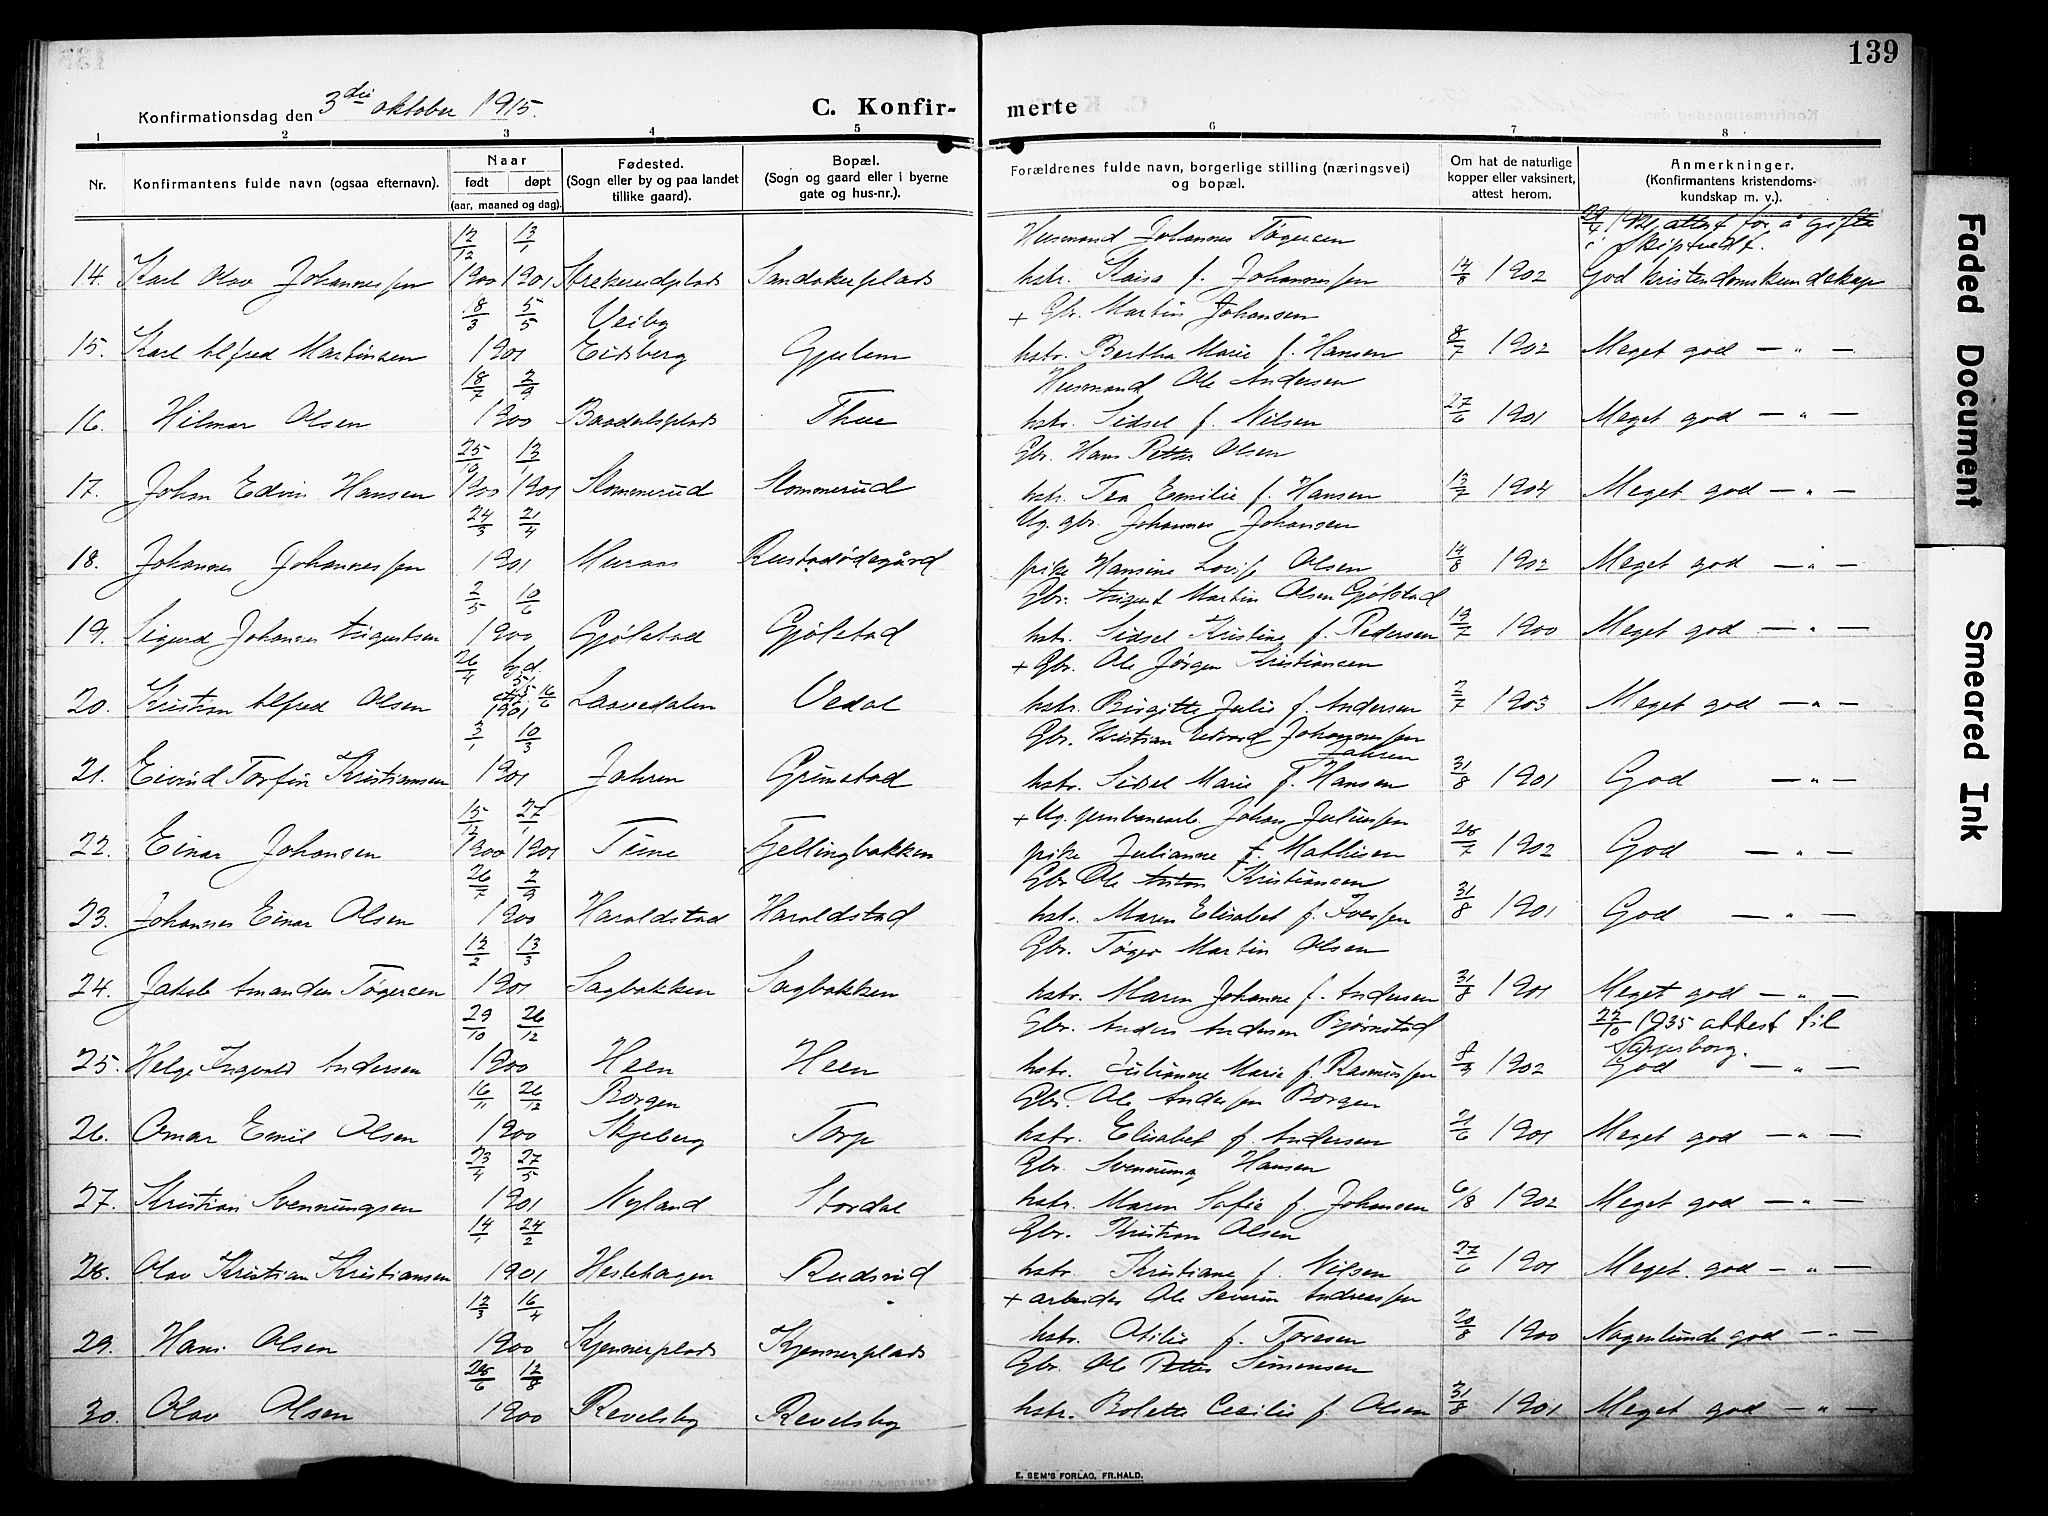 139
Konfirmationsdag den 3die oktober 1915.
C. Konfir-
merte
1 2 3 4 5 6 7 8
Nr.
Konfirmantens fulde navn (ogsaa efternavn).
Naar
født døpt
(aar, maaned og dag).
Fødested.
(Sogn eller by og paa landet
tillike gaard).
Bopæl.
(Sogn og gaard eller i byerne
gate og hus-nr.).
Forældrenes fulde navn, borgerlige stilling (næringsvei)
og bopæl.
Om hat de naturlige
kopper eller vaksinert,
attest herom.
Anmerkninger.
(Konfirmantens kristendoms-
kundskap m. v.).
12/12 13/1 Husmand Johannes Tøgersen attest for å gifte
i Skiptvedt.
14. Karl Olav Johannessen 1900 1901 Strekerudplads Sandakerplads hstr. Kaisa f. Johannessen 14/8 1902 God kristendomskundskap
8/3 5/5 Veiby + Gbr. Martin Johansen
15. Karl Alfred Martinsen 1901 Eidsberg Gjulem hstr. Bertha Marie f. Hansen 8/7 1902 Meget god — " —
18/7 2/9 Husmand Ole Andersen
16. Hilmar Olsen 1900 Baadalsplads Thue hstr. Sidsel f. Nilsen 27/6 1901 Meget god — " —
25/10 13/1 Gbr. Hans Petter Olsen
17. Johan Edvin Hansen 1900 1901 Slommerud Slommerud hstr. Tea Emilie f. Hansen 13/7 1904 Meget god — " —
24/3 21/4 Ug. gbr. Johannes Johansen
18. Johannes Johannessen 1901 Muraas Rustadødegård pike Hansine Lovise Olsen 14/8 1902 Meget god — " —
2/5 10/6 Gbr. August Martin Olsen Gjølstad
19. Sigurd Johannes Augustsen 1900 Gjølstad Gjølstad hstr. Sidsel Kristine f. Pedersen 19/7 1900 Meget god — " —
26/4 hd. 5/5 + Gbr. Ole Jørgen Kristiansen
20. Kristian Alfred Olsen 1901 16/6 Laavedalen Vedal hstr. Birgitte Julie f. Andersen 2/7 1903 Meget god — " —
3/1 10/3 Gbr. Kristian Edvard Johannessen
Jahren
21. Eivind Torfin Kristiansen 1901 Jahren Grimstad hstr. Sidsel Marie f. Hansen 31/8 1901 God — " —
15/12 27/1 + Ug. jernbanearb. Johan Juliussen
22. Einar Johansen 1900 1901 Teine Fjellingbakken pike Julianne f. Mathisen 28/7 1902 God — " —
26/7 2/9 Gbr Ole Anton Kristiansen
23. Johannes Einar Olsen 1900 Haraldstad Haraldstad hstr. Maren Elisabet f. Iversen 31/8 1901 God — " —
12/2 13/3 Gbr. Tøger Martin Olsen
24. Jakob Amandus Tøgersen 1901 Sagbakken Sagbakken hstr. Maren Johanne f. Andersen 31/8 1901 Meget god — " —
29/10 26/12 Gbr. Anders Andersen Bjørnstad 22/10 1935 attest til
Sarpsborg.
25. Helge Ingvald Andersen 1900 Heen Heen hstr. Julianne Marie f. Rasmussen 8/3 1902 God — " —
16/11 26/12 Borgen Gbr. Ole Andersen Borgen
26. Omar Emil Olsen 1900 Skjeberg Torp hstr. Elisabet f. Andersen 21/6 1901 Meget god — " —
23/4 27/5 Gbr. Svennung Hansen
27. Kristian Svennungsen 1901 Nyland Stordal hstr. Maren Sofie f. Johansen 6/8 1902 Meget god — " —
14/1 24/2 Gbr. Kristian Olsen
28. Olav Kristian Kristiansen 1901 Hestehagen Rudsrud hstr. Kristiane f. Nilsen 27/6 1901 Meget god — " —
12/3 16/4 + arbeider Ole Severin Andreassen
29. Hans Olsen 1900 Kjennerplads Kjennerplads hstr. Otilie f. Toresen 20/8 1900 Nogenlunde god — " —
28/6 12/8 Gbr. Ole Petter Simensen
30. Olav Olsen 1900 Revelsby Revelsby hstr. Bolette Cecilie f. Olsen 31/8 1901 Meget god — " —
E. SEM'S FORLAG, FR.HALD.
Faded Document
Smeared Ink